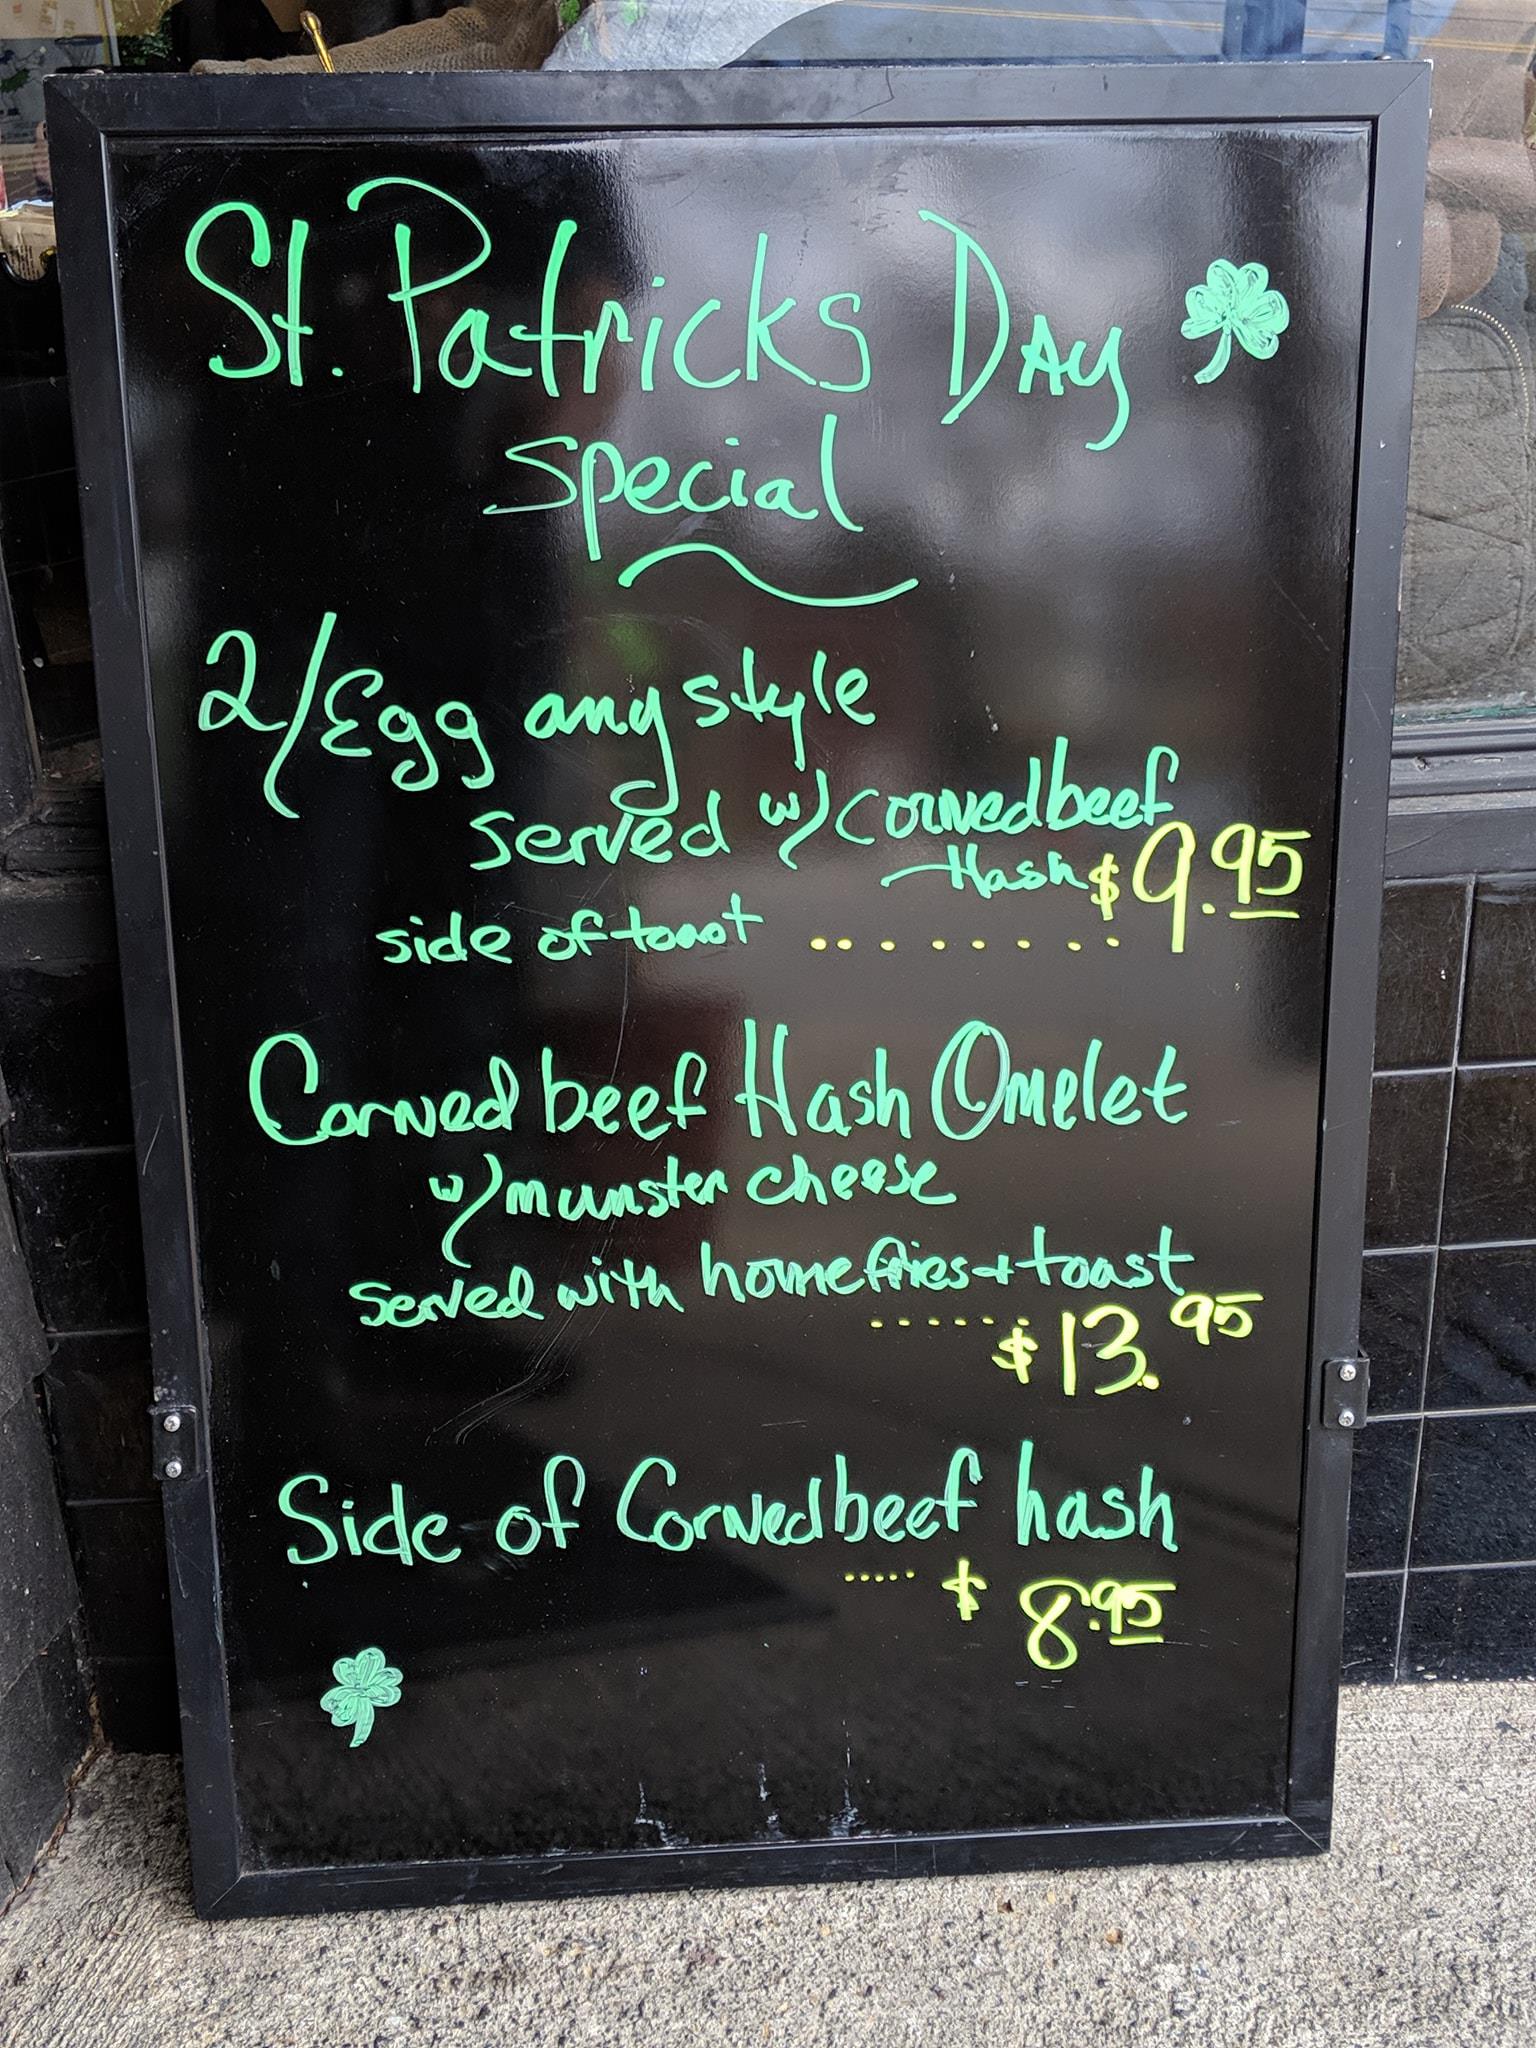 St. Patricks Day
special
2/Egg any style
served w/ corned beef
Hash $9.95
side of toast ........
Corned beef Hash Omelet
w/ munster cheese
served with homefries + toast
...... $13.95
Side of Corned beef hash
..... $8.95